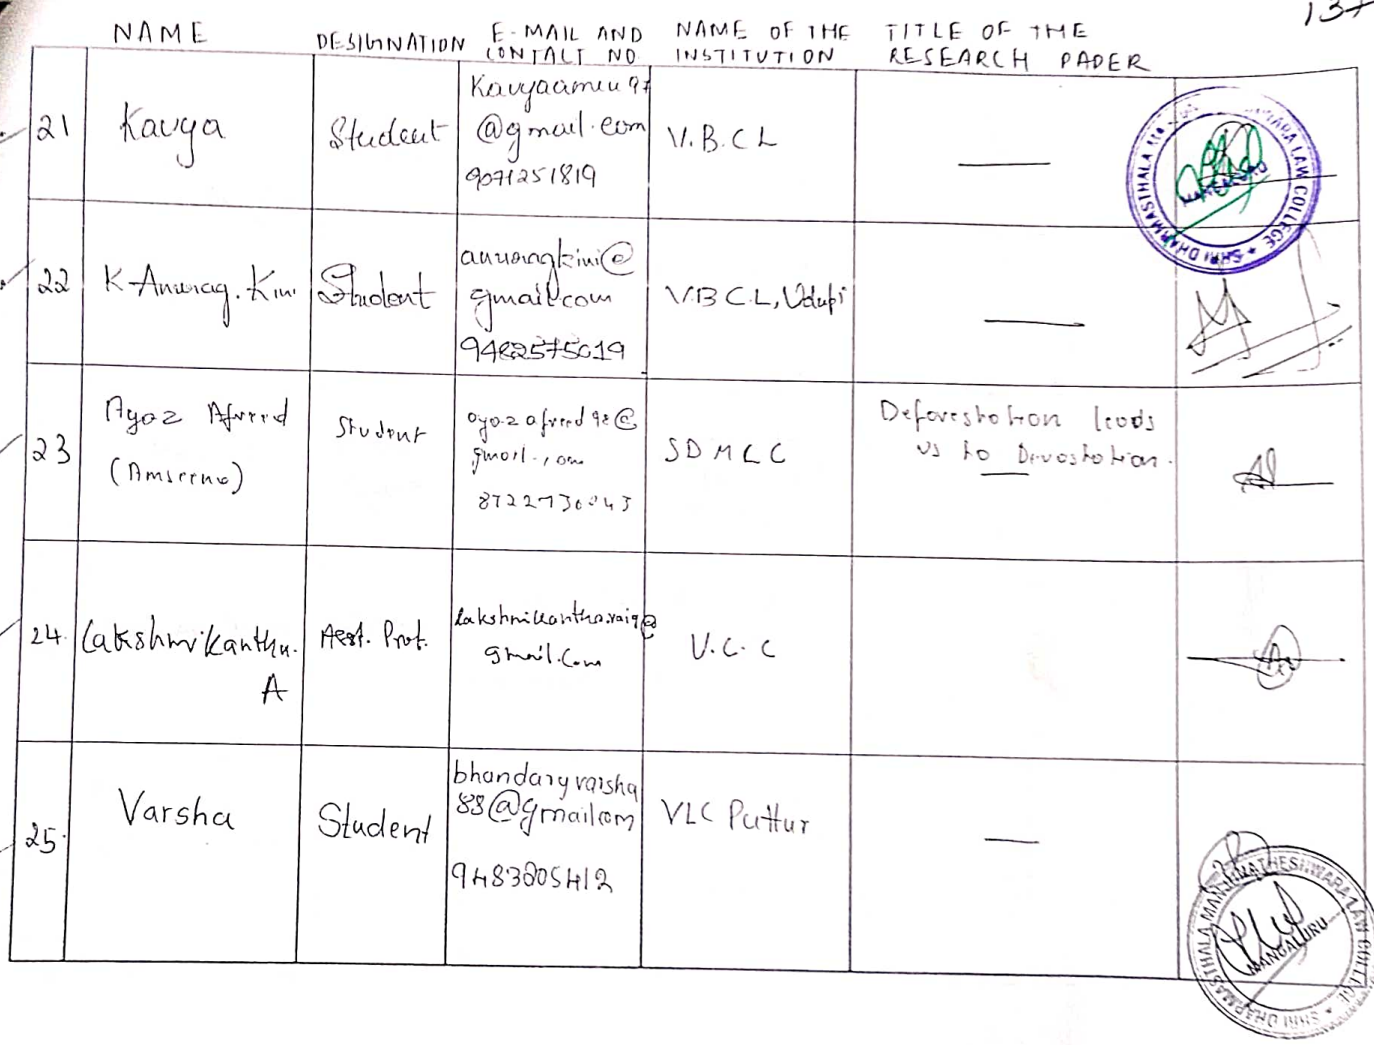 137
NAME DESIGNATION E-MAIL AND CONTACT NO NAME OF THE INSTITUTION TITLE OF THE RESEARCH PAPER
21 Kavya Student Kavyaameu97
@gmail.com
9071251819 V.B.C L —
22 K Anurag. Kini Student anuragkini@
gmail.com
9482575019 V.B C.L, Udupi —
23 Ayaz Afreed
(Amseena) Student ayazafreed98@
gmail.com
SDMLC Deforestation leads
us to Devastation.
24. Lakshmikantha.
A Asst. Prof. lakshmikantha.rai9@
gmail.com V.C.C
25. Varsha Student bhandaryvarsha
88@gmailcom
9483205412 VLC Puttur —
SHRI DHARMASTHALA LAW COLLEGE
SHRI DHARMASTHALA MANJUNATHESHWARA LAW COLLEGE
MANGALURU